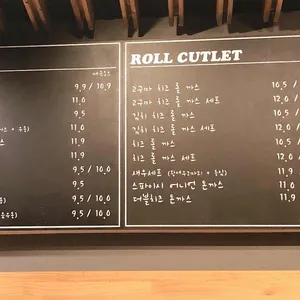 9.9 / 10.9
11.0
9.5
11.9
11.9
9.5 / 10.0
9.5
9.5 / 10.0
9.5 / 10.0
ROLL CUTLET
고구마 치즈 롤 까스 10.5 /
고구마 치즈 롤 까스 세트 12.0 /
김치 치즈 롤 까스 10.5 /
김치 치즈 롤 까스 세트 12.0 /
치즈 롤 까스 10.5 /
치즈 롤 까스 세트 12.0 /
새우세트 11.9
스파이시 어니언 돈까스 11.0
더블치즈 돈까스 11.9